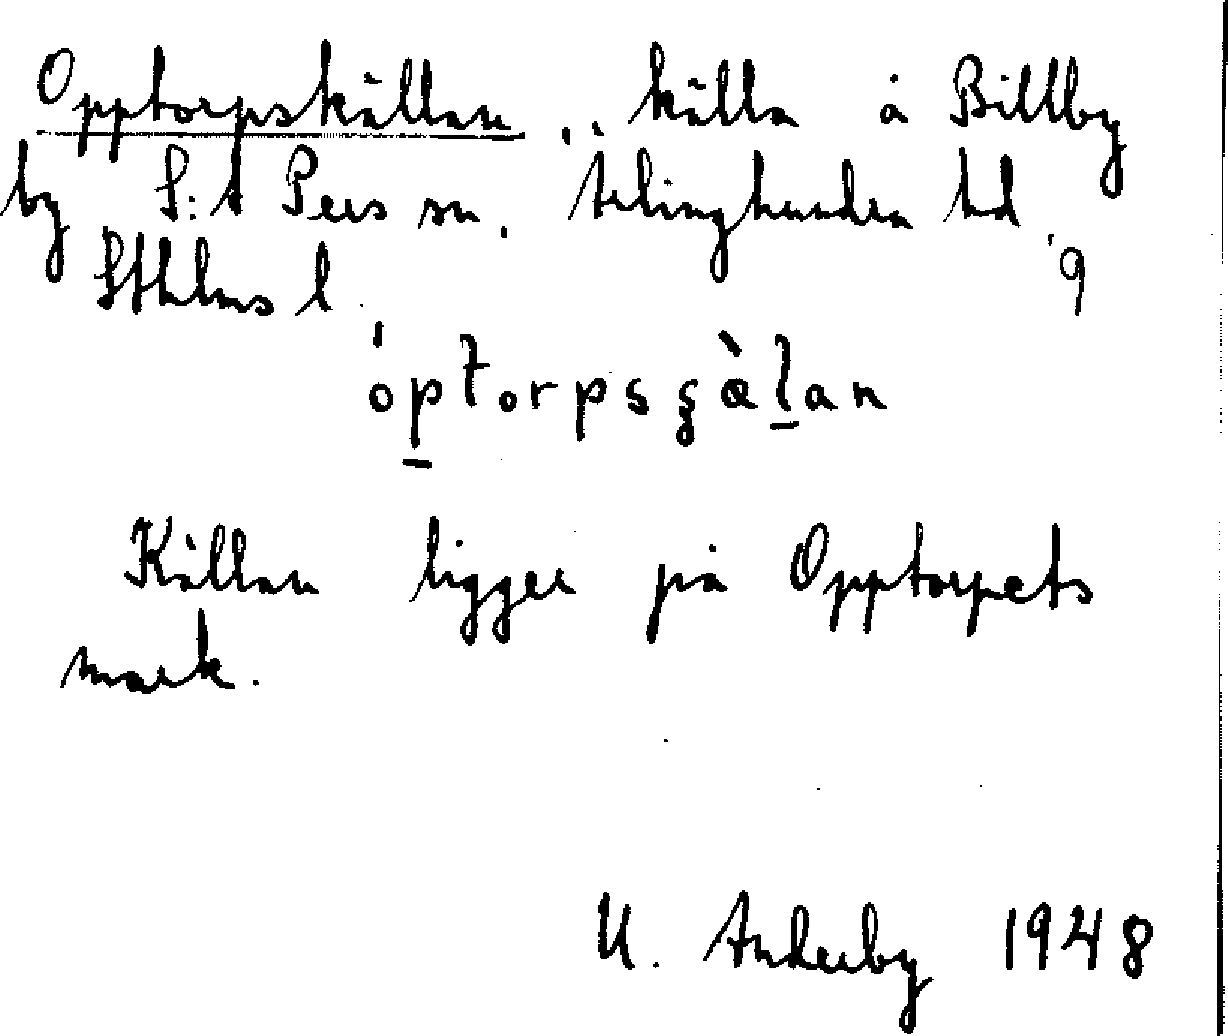 Opptorpskällan, källa å Billby
by S:t Pers sn. Ärlinghundra hd
Sthlms l. 9
óptorpsgàlan
Källan ligger på Opptorpets
mark.
U. 1948